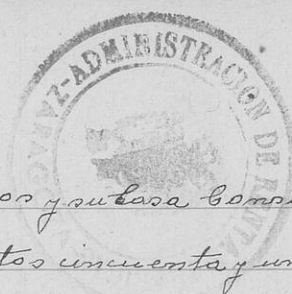 ADMINISTRACION DE RENTA
os y su casa Cons
tos cincuenta y un